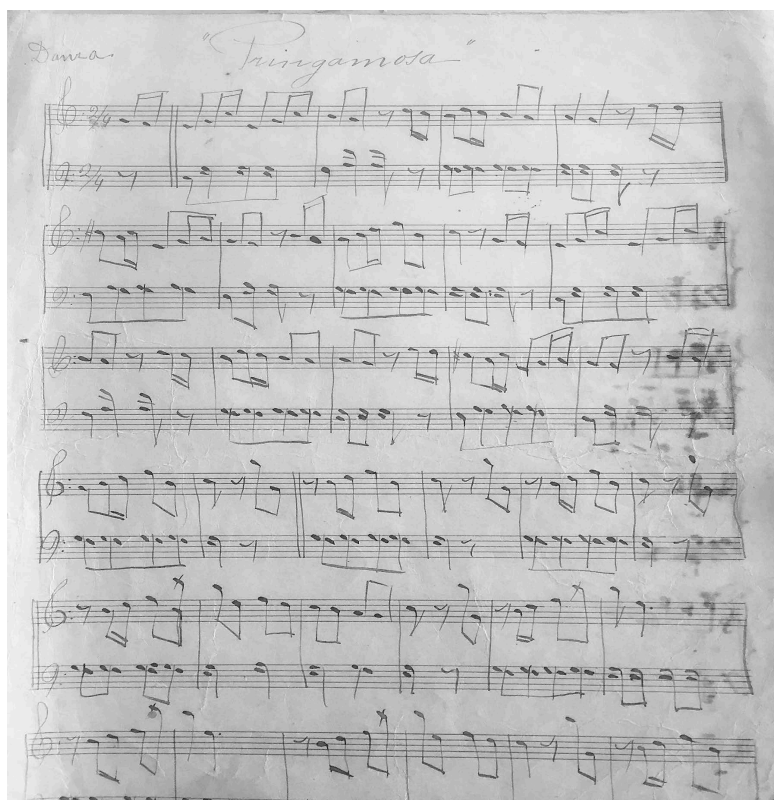 Danza "Pringamosa"
2/4
2/4